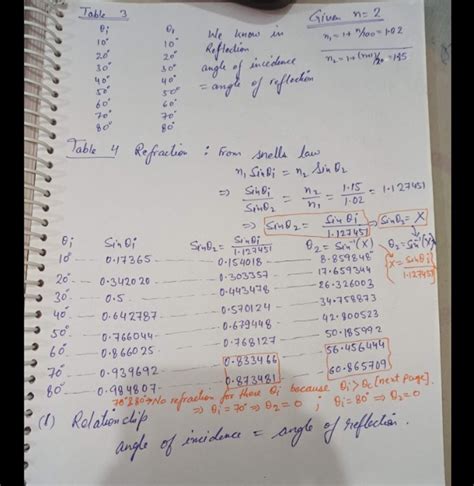 Table 3
θi θr
10° 10°
20° 20°
30° 30°
40° 40°
50° 50°
60° 60°
70° 70°
80° 80°
We know in
Reflection
angle of incidence
= angle of reflection
Given n=2
n₁ = 1+ n/100 = 1.02
Table 4 Refraction : From snells law
n₁ Sinθi = n₂ Sinθ₂
⇒ Sinθi/Sinθ₂ = n₂/n₁ = 1.15/1.02 = 1.127451
⇒ Sinθ₂ = Sinθi/1.127451 ⇒ Sinθ₂ = X
θ₂ = Sin⁻¹(X)
X = Sinθi/1.127451
θi Sinθi Sinθ₂ = Sinθi/1.127451 θ₂ = Sin⁻¹(X)
10° 0.17365 0.154018 8.859848°
20° 0.342020 0.303357 17.659344
30° 0.5 0.443478 26.326003
40° 0.642787 0.570124 34.758873
50° 0.766044 0.679448 42.800523
60° 0.866025 0.768127 50.185992
70° 0.939692 0.833466 56.456444
80° 0.984807 0.873481 60.865709
70° & 80° → No refraction for these θi because θi > θc [next page].
⇒ θi = 70° ⇒ θ₂ = 0 ; θi = 80° ⇒ θ₂ = 0
Relationship
angle of incidence = angle of reflection.